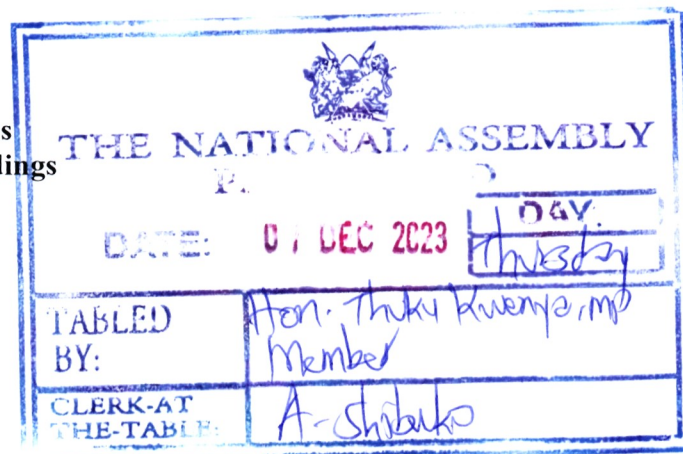 s
lings
THE NATIONAL ASSEMBLY
P
DATE: 07 DEC 2023
DAY:
Thursday
TABLED BY:
Hon. Thuku Kwenya, MP
Member
CLERK-AT THE-TABLE:
A. Shibuko